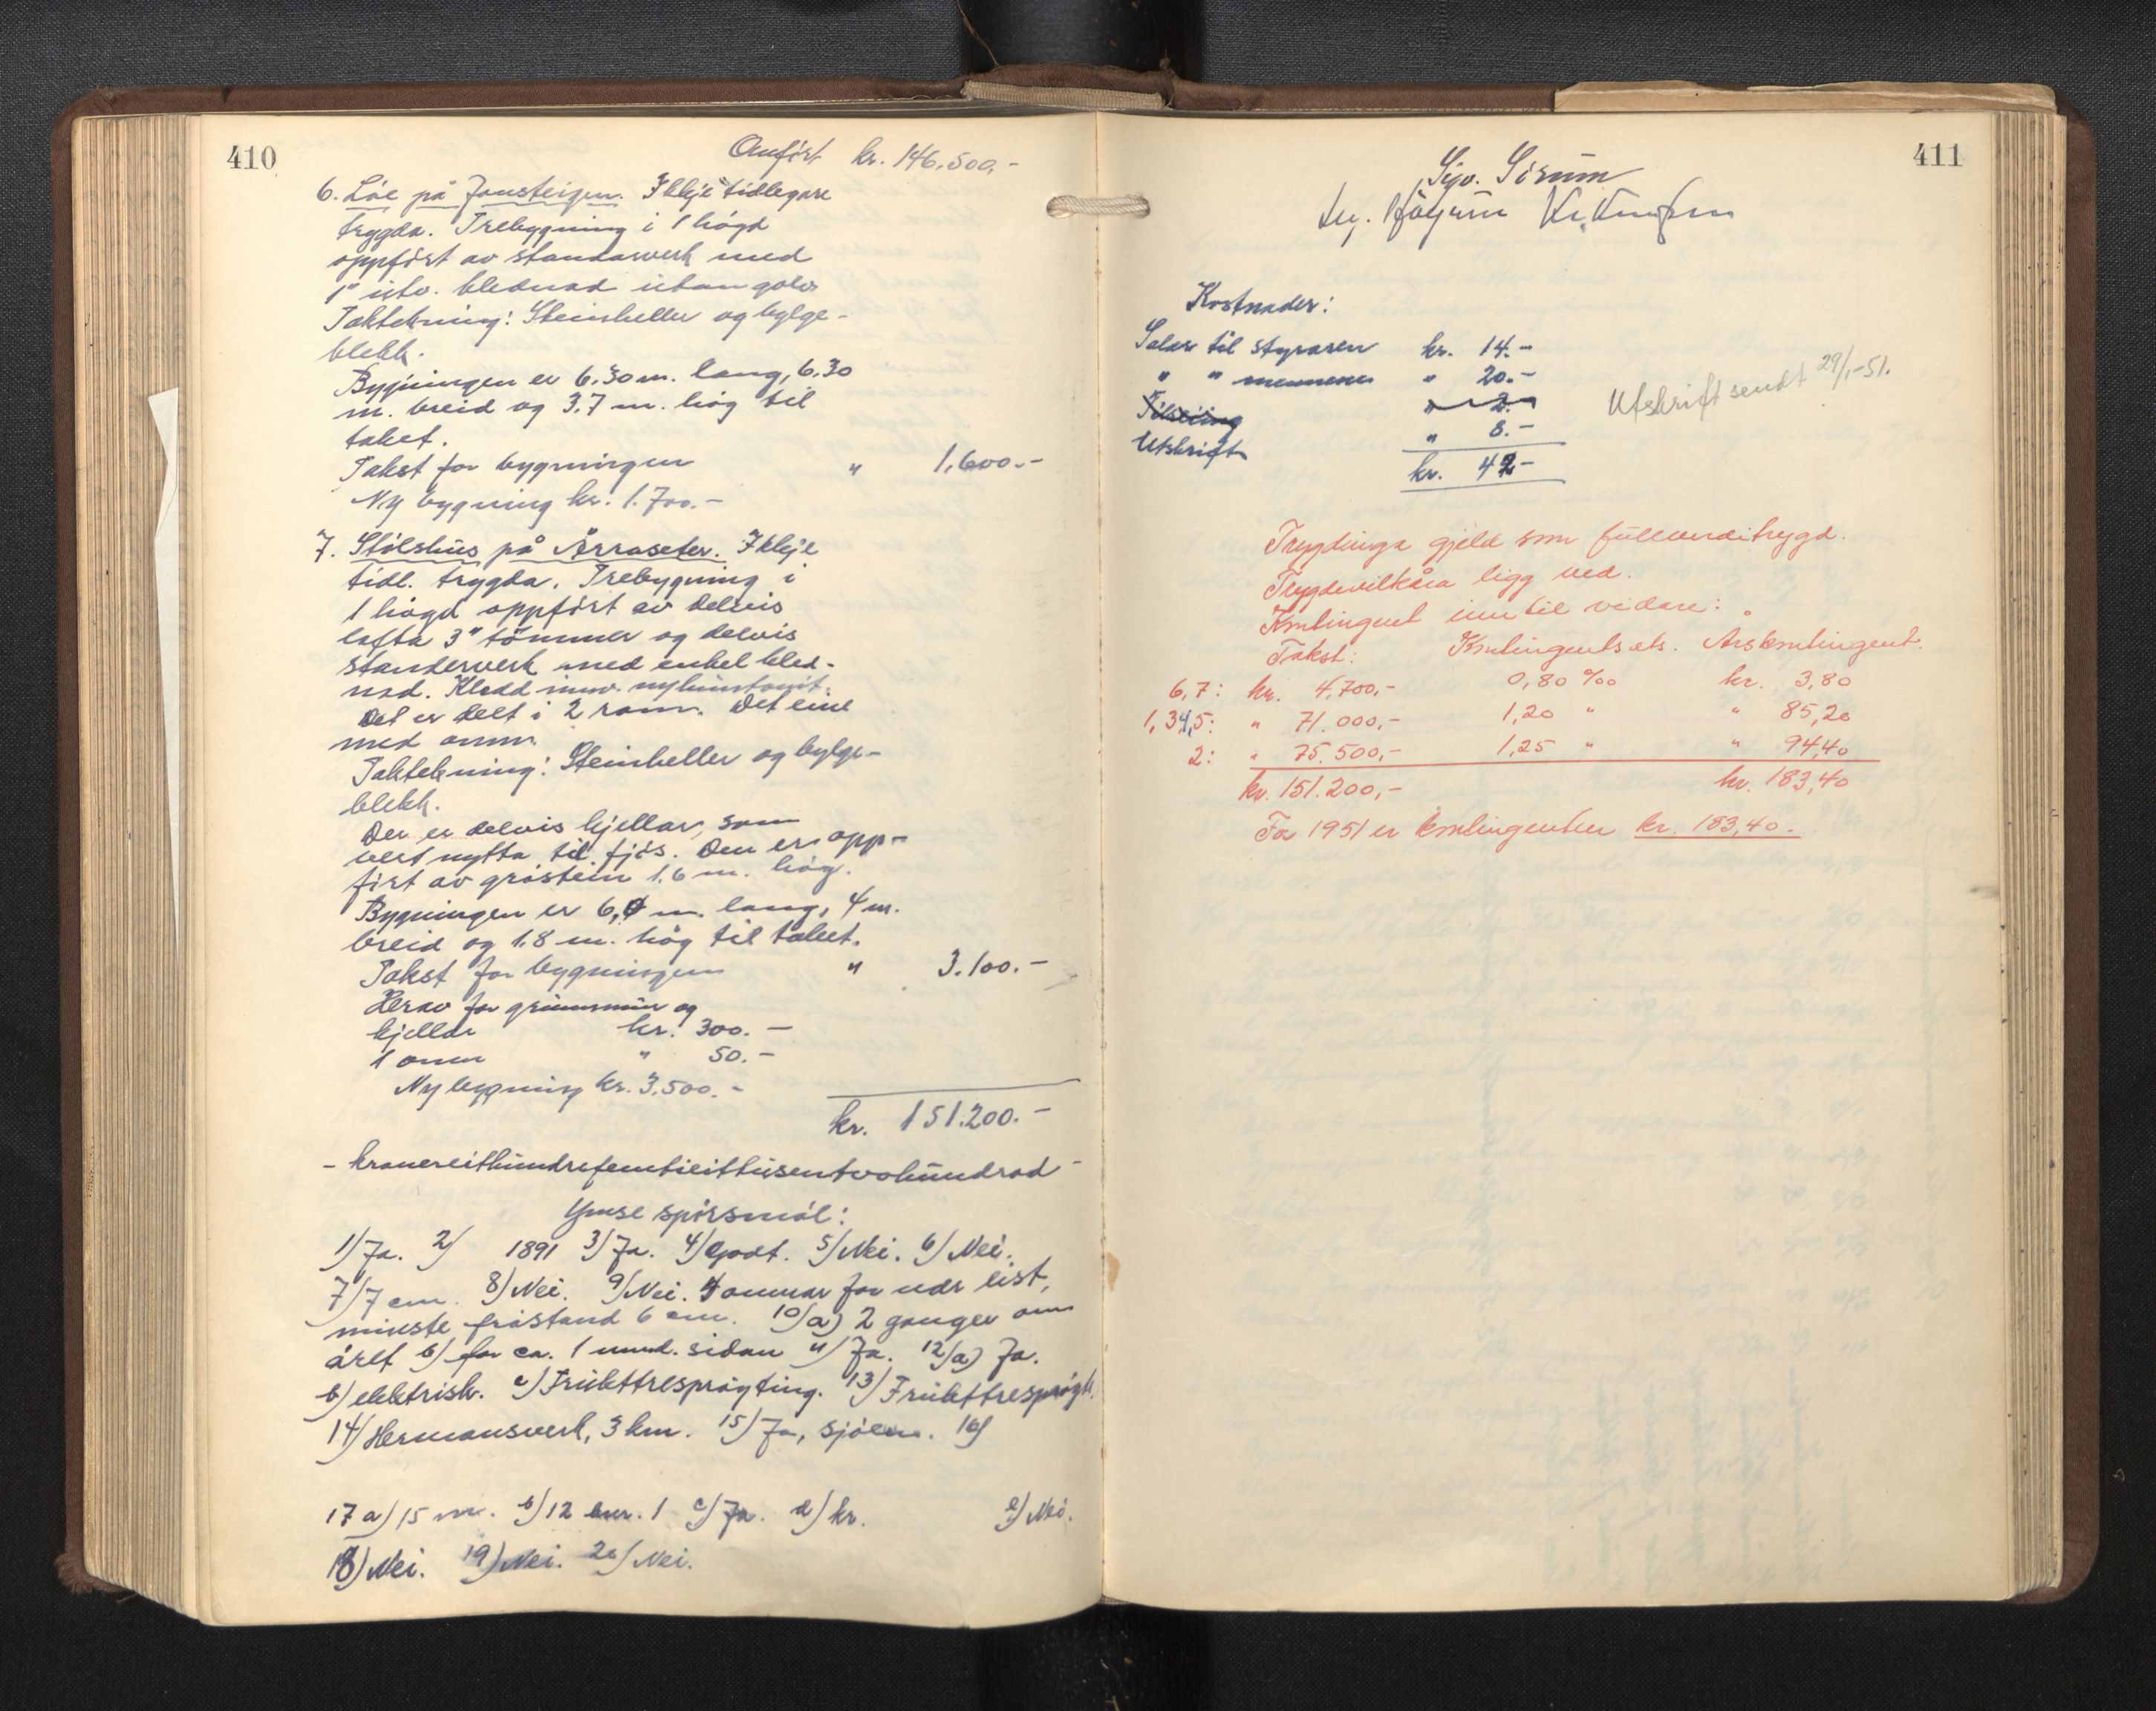 410
Omført kr. 146.500,-
6. Löe på Jonsteigen. Ikkje tidlegare
trygda. Trebygning i 1 högd
oppfört av standarverk med
1" utv. klednad utan golv
Taktekning: Steinheller og bylgje-
blekk.
Bygningen er 6,30 m. lang, 6,30
m. breid og 3,7 m. hög til
taket.
Takst for bygningen " 1.600.-
Ny bygning kr. 1.700.-
7. Stölshus på Årraseter. Ikkje
tidl. trygda. Trebygning i
1 högd oppfört av delvis
lafta 3" tömmer og delvis
standerverk med enkel kled-
nad. Kledd innv.
Det er delt i 2 rom. Det eine
med omn.
Taktekning: Steinheller og bylge-
blekk.
Der er delvis kjellar, som
vert nytta til fjös. Den er opp-
fört av gråstein 1,6 m. hög.
Bygningen er 6,0 m. lang, 4 m.
breid og 1.8 m. hög til taket.
Takst for bygningen " 3.100.-
Herav for grunnmur og
kjellar kr. 300.-
1 omn " 50.-
Ny bygning kr. 3.500.-
kr. 151.200.-
- kronereithundrefemtieittusentvohundrad -
Ymse spörsmål:
1) Ja. 2) 1891 3) Ja. 4) Godt. 5) Nei. 6) Nei.
7) 7 cm. 8) Nei. 9) Nei. 4 omnar for nær list,
minste fråstand 6 cm. 10) a) 2 ganger om
året b) for ca. 1 mnd. sidan 11) Ja. 12) a) Ja.
b) elektrisk. c) Frukttresprøyting. 13) Frukttresprøyt.
14) Hermansverk, 3 km. 15) Ja, sjöen. 16)
17 a) 15 m. b) 12 1 c) Ja. d) kr. e) Nei.
18) Nei. 19) Nei. 20) Nei.
411
Sigv. Sörum
Kostnader:
Salær til styraren kr. 14.-
" " mennene " 20.-
Tilseiing " 2.-
Utskrift " 8.-
kr. 42.-
Utskrift sendt 29/1-51.
Trygdinga gjeld som fullverditrygd.
Trygdevilkåra ligg ved.
Kontingent inntil vidare:
Takst: Kontingentsats. Årskontingent.
6,7: kr. 4.700,- 0,80 ‰ kr. 3,80
1,3,4,5: " 71.000,- 1,20 " " 85,20
2: " 75.500,- 1,25 " " 94,40
kr. 151.200,- kr. 183,40
For 1951 er kontingenten kr. 183,40.